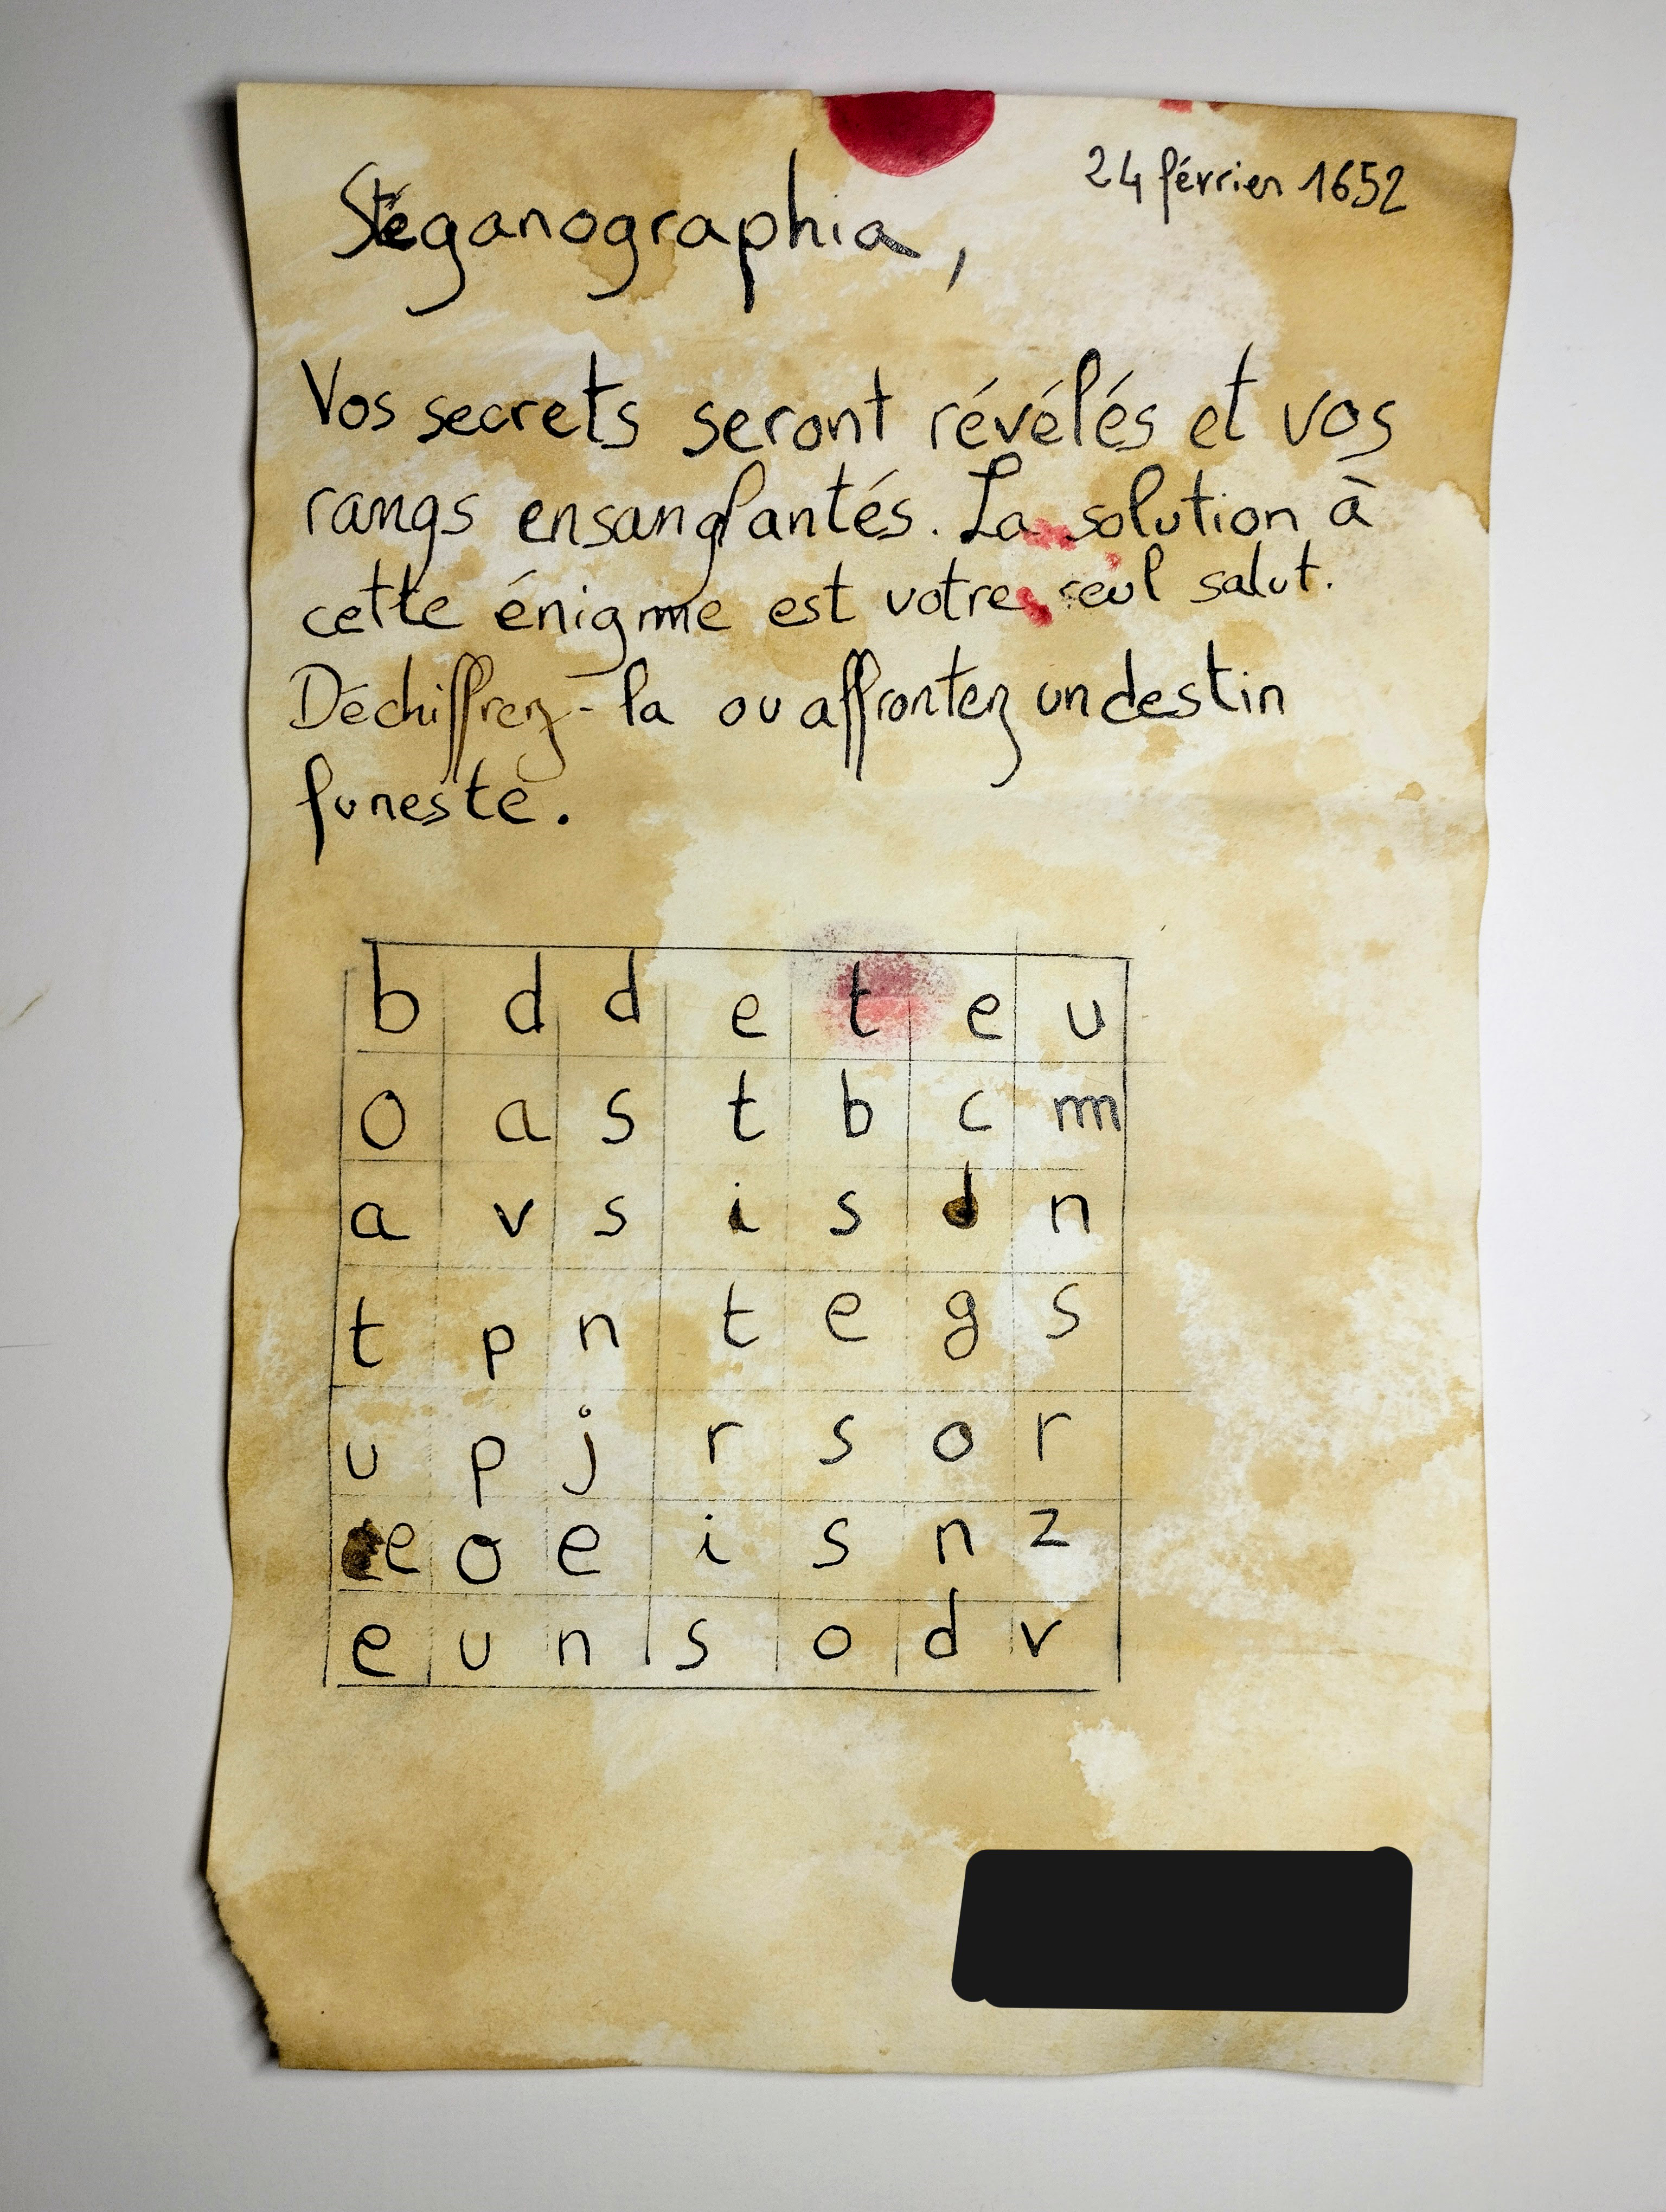 24 février 1652
Stéganographia,
Vos secrets seront révélés et vos
rangs ensanglantés. La solution à
cette énigme est votre seul salut.
Déchiffrez-la ou affrontez un destin
funeste.
b d d e t e u
o a s t b c m
a v s i s d n
t p n t e g s
u p j r s o r
e o e i s n z
e u n s o d v